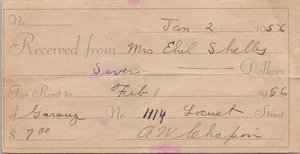 No. Jan 2 1956
Received from Mrs Ehel Shelly
Seven Dollars
For Rent to Feb 1 1956
of Garauz No. 1114 Locust Street
$ 7.00 A W Chapin